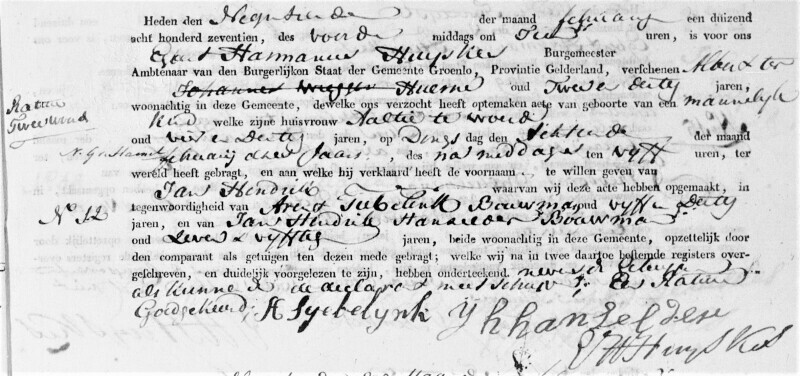 Heden den Negentiende der maand februarij een duizend
acht honderd zeventien, des voorde middags om Tien uren, is voor ons
Evert Harmanus Huyskes Burgemeester
Ambtenaar van den Burgerlijken Staat der Gemeente Groenlo, Provintie Gelderland, verschenen Albert ter
Huerne oud Twee en dertig jaren,
woonachtig in deze Gemeente, dewelke ons verzocht heeft optemaken acte van geboorte van een mannelijk
Kind welke zijne huisvrouw Aaltie te
oud vier en Dertig jaren, op Dings dag den der maand
februarij dezes Jaars, des na middags ten vyff uren, ter
wereld heeft gebragt, en aan welke hij verklaard heeft de voornaam te willen geven van
Jan Hendrik waarvan wij deze acte hebben opgemaakt, in
No 12
tegenwoordigheid van Arend Sebelink Bouwman oud vyff en Dertig
jaren, en van Jan Hendrik Bouwman
oud Zeven en vyfftig jaren, beide woonachtig in deze Gemeente, opzettelijk door
den comparant als getuigen ten dezen mede gebragt; welke wij na in twee daartoe bestemde registers over-
geschreven, en duidelijk voorgelezen te zijn, hebben onderteekend. nevens de Getuigen
als kunnende de declarant niet schryven. Een Rature
Goedgekeurd; A Syebelynk J h hanselder
E H Huyskes